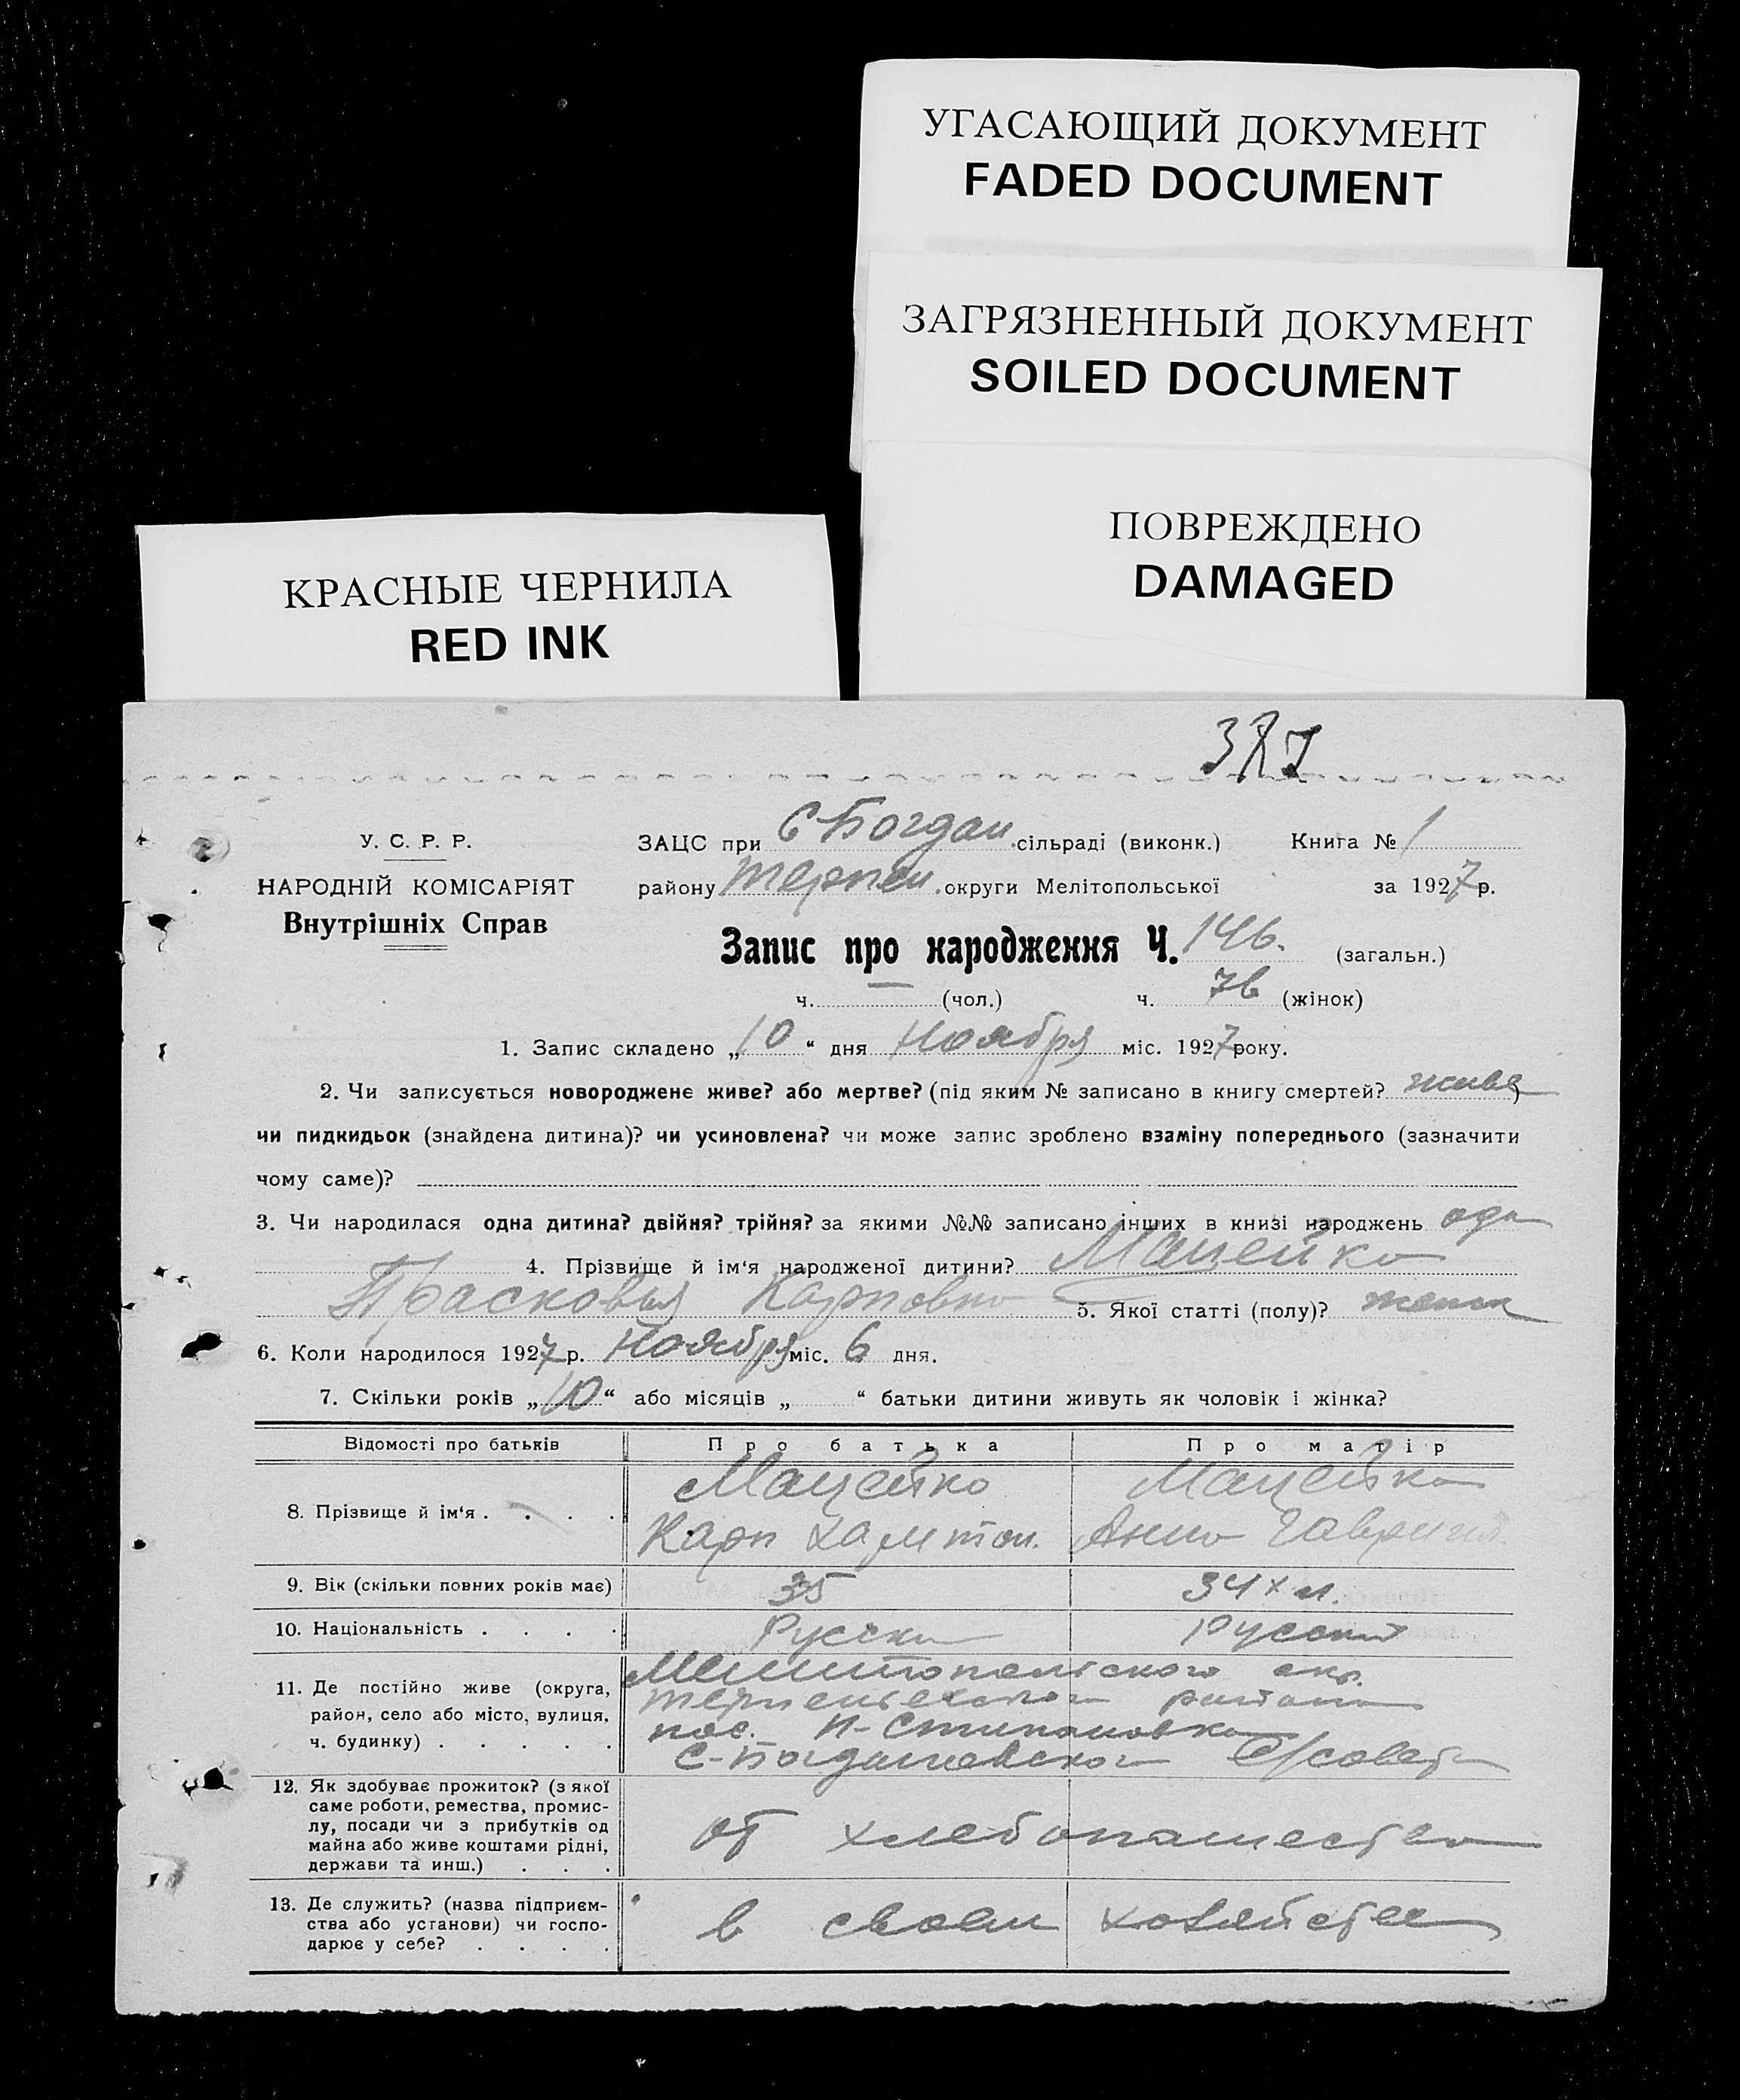 УГАСАЮЩИЙ ДОКУМЕНТ
FADED DOCUMENT
ЗАГРЯЗНЕННЫЙ ДОКУМЕНТ
SOILED DOCUMENT
ПОВРЕЖДЕНО
DAMAGED
КРАСНЫЕ ЧЕРНИЛА
RED INK
У. С. Р. Р.
НАРОДНІЙ КОМІСАРІЯТ
Внутрішніх Справ
ЗАЦС при С-Богдан. сільраді (виконк.) Книга № 1
району Терпен. округи Мелітопольської за 1927 р.
Запис про народження Ч. 146. (загальн.)
ч. — (чол.) ч. 76 (жінок)
1. Запис складено „10“ дня Ноября міс. 1927 року.
2. Чи записується новороджене живе? або мертве? (під яким № записано в книгу смертей? живе)
чи пидкидьок (знайдена дитина)? чи усиновлена? чи може запис зроблено взаміну попереднього (зазначити
чому саме)?
3. Чи народилася одна дитина? двійня? трійня? за якими №№ записано інших в книзі народжень одн
4. Прізвище й ім‘я народженої дитини? Мацейко
Прасковья Карповна 5. Якої статті (полу)? женск
6. Коли народилося 1927 р. Ноября міс. 6 дня.
7. Скільки років „10“ або місяців „ “ батьки дитини живуть як чоловік і жінка?
Відомості про батьків Про батька Про матір
8. Прізвище й ім‘я . . . . Мацейко Мацейко
Карп Анна
9. Вік (скільки повних років має) 35 34
10. Національність . . . . Русски Русский
11. Де постійно живе (округа,
район, село або місто, вулиця,
ч. будинку) . . . . .
Мелитопольского окр.
Терпеньевского района
пос. Н-Степановка
С-Богдановского С/совета
12. Як здобуває прожиток? (з якої
саме роботи, ремества, промис-
лу, посади чи з прибутків од
майна або живе коштами рідні,
держави та инш.) . . .
от хлебопашества
13. Де служить? (назва підприєм-
ства або установи) чи госпо-
дарює у себе? . . . .
в своем хозяйстве